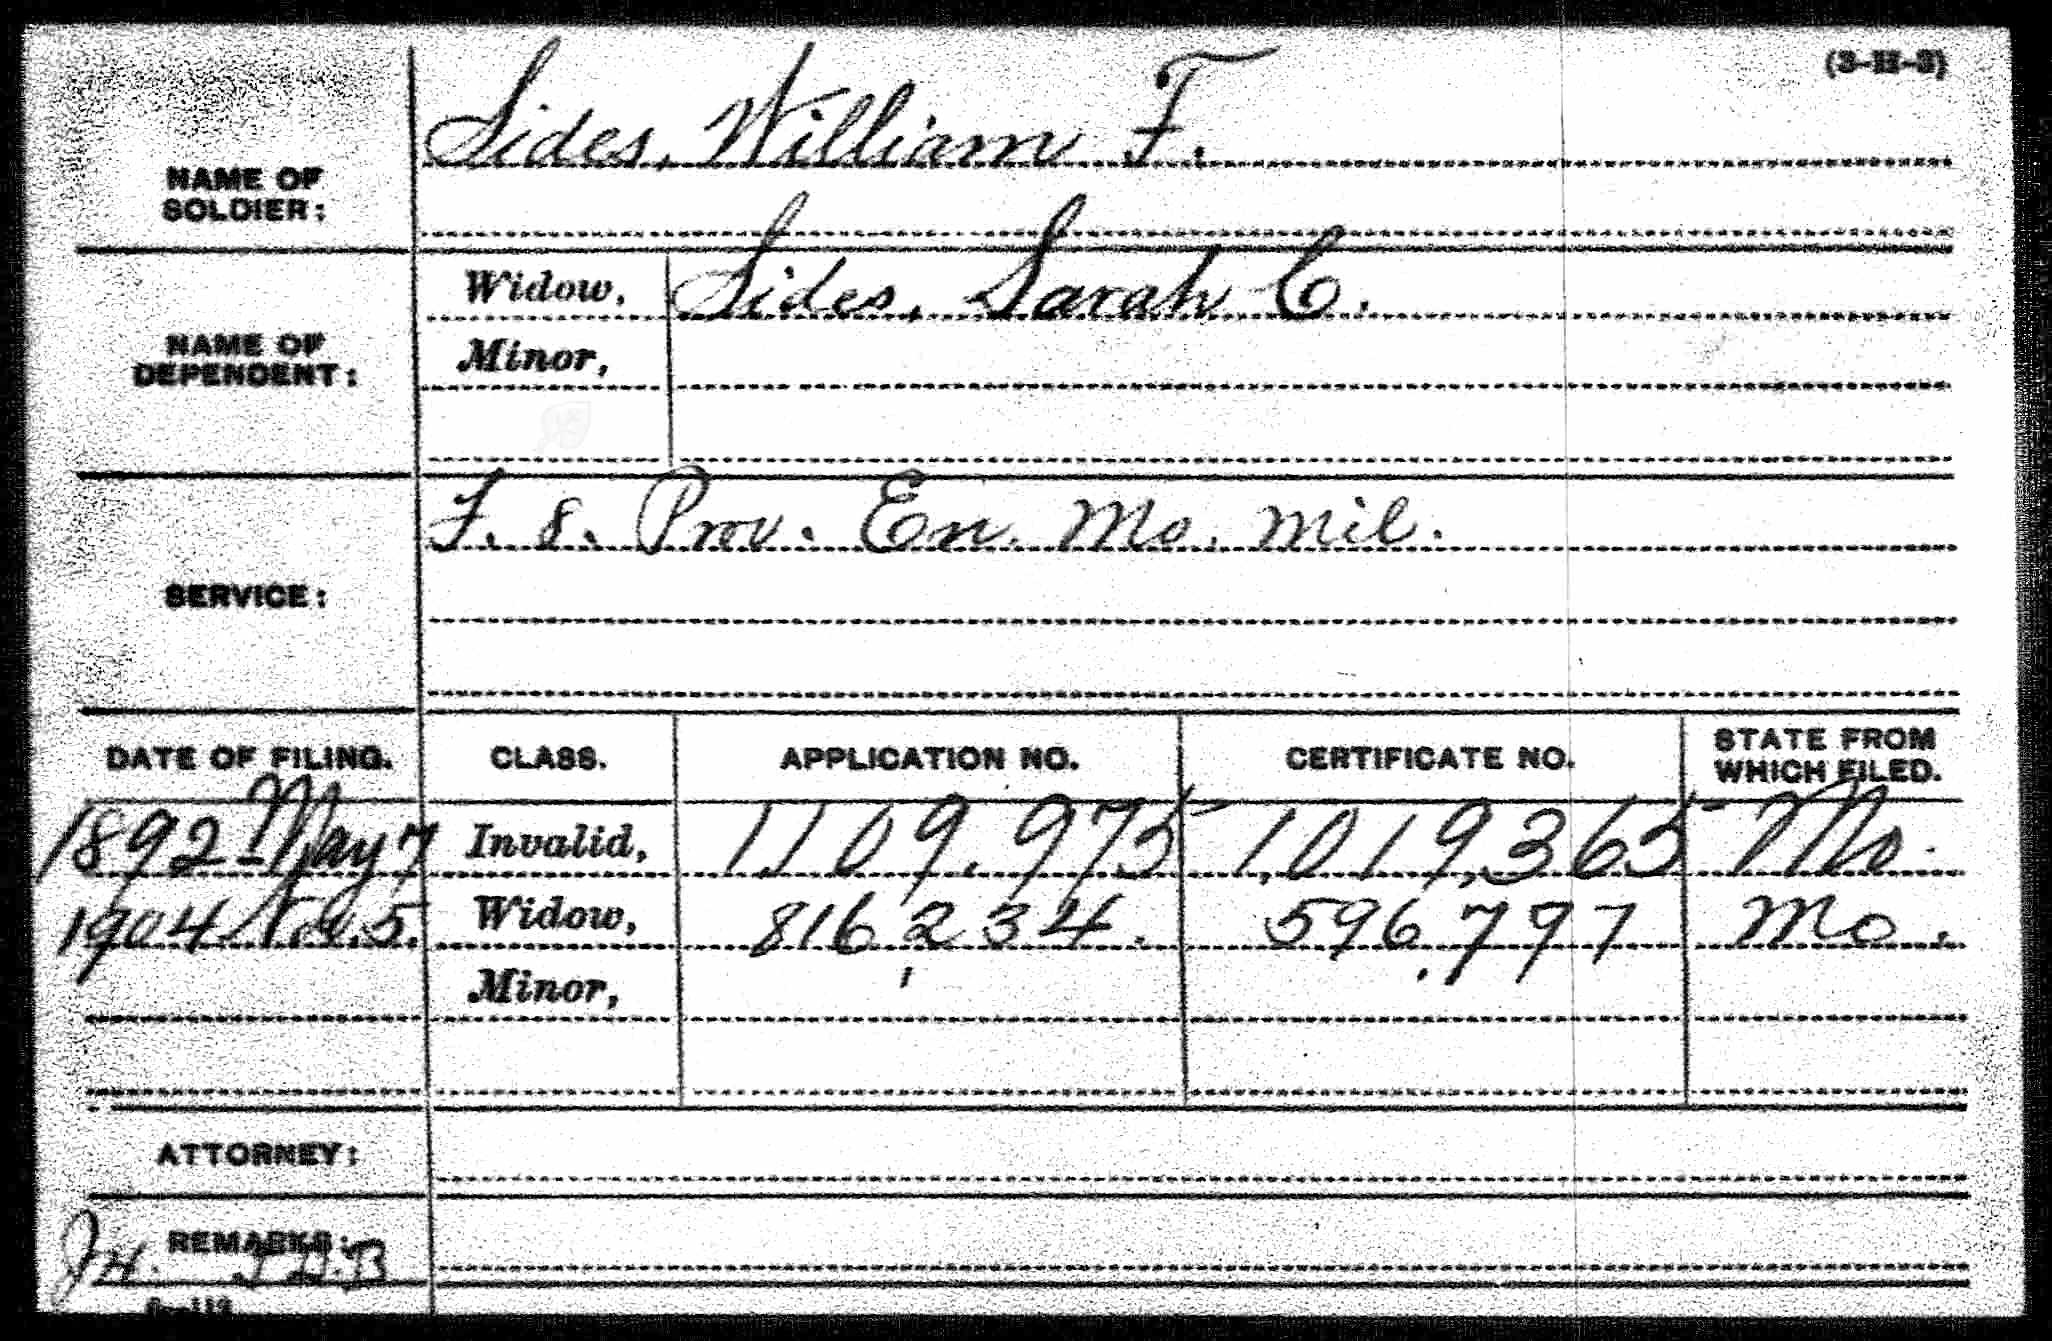 (3-II-3)
Sides, William F.
NAME OF
SOLDIER:
Widow, Sides, Sarah C.
NAME OF
DEPENDENT:
Minor,
F. 8. Prov. En. Mo. Mil.
SERVICE:
DATE OF FILING. CLASS. APPLICATION NO. CERTIFICATE NO. STATE FROM
WHICH FILED.
1892 May 7 Invalid, 1109.975 1,019,365 Mo.
1904 Nov. 5. Widow, 816,234. 596.797 Mo.
Minor,
ATTORNEY:
REMARKS: